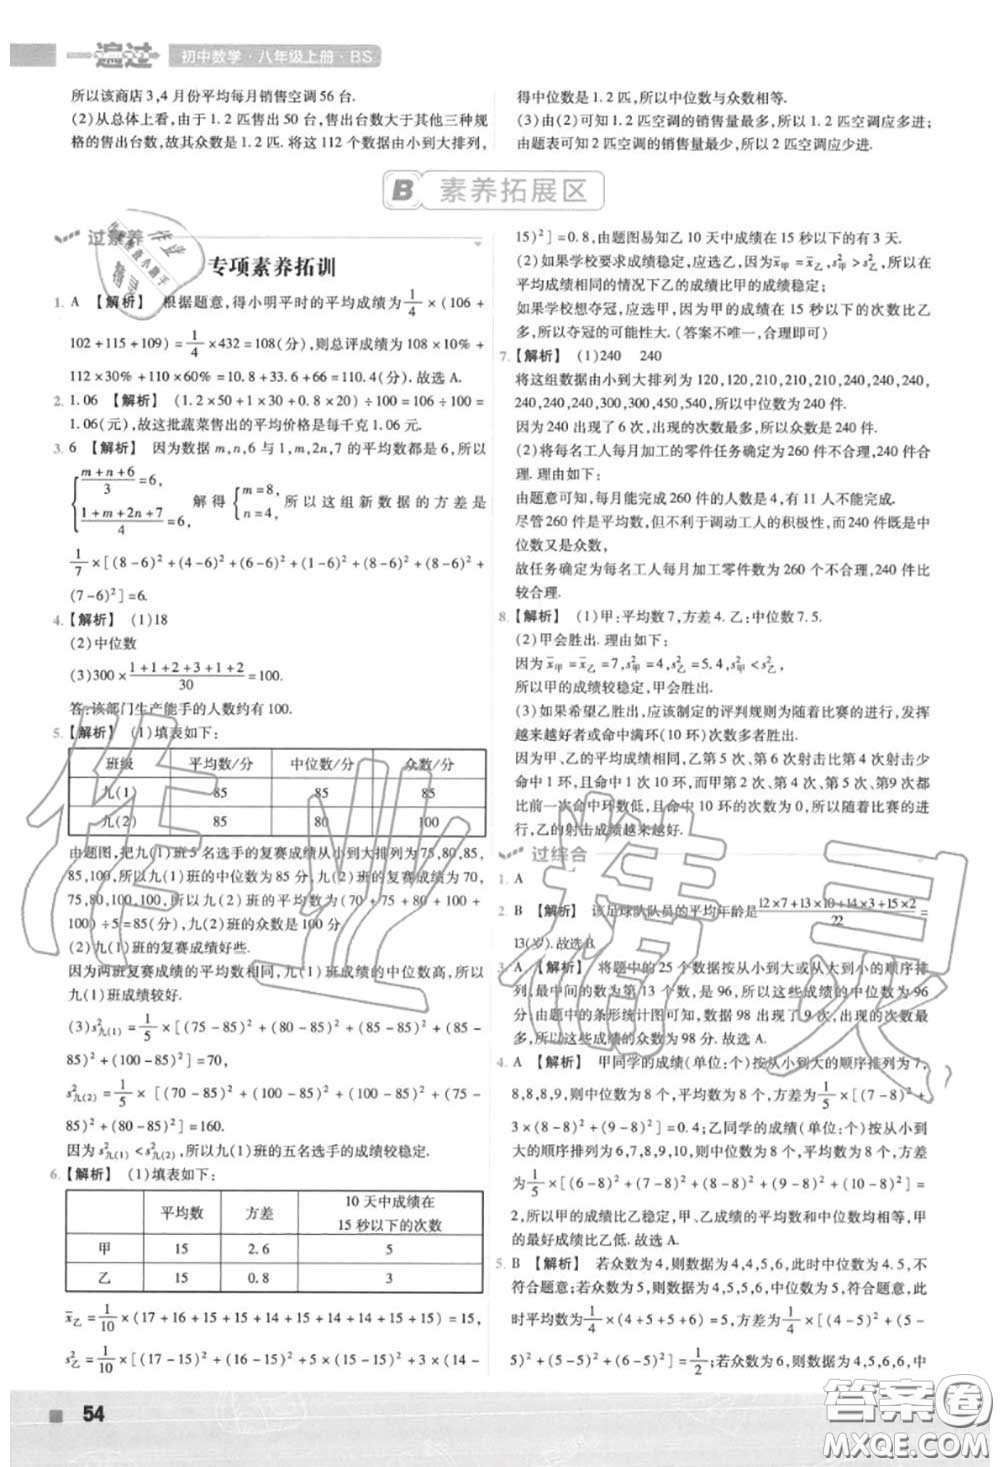 一遍过 初中数学·八年级上册·BS
所以该商店3,4月份平均每月销售空调56台.
(2)从总体上看,由于1.2匹售出50台,售出台数大于其他三种规
格的售出台数,故其众数是1.2匹.将这112个数据由小到大排列,
得中位数是1.2匹,所以中位数与众数相等.
(3)由(2)可知1.2匹空调的销售量最大,所以1.2匹空调应多进;
由题表可知2匹空调的销售量最少,所以2匹空调应少进.
B 素养拓展区
过素养
专项素养拓训
1. A 【解析】 根据题意,得小明平时的平均成绩为1/4×(106+
102+115+109)=1/4×432=108(分),则总评成绩为108×10%+
112×30%+110×60%=10.8+33.6+66=110.4(分).故选A.
2. 1.06 【解析】 (1.2×50+1×30+0.8×20)÷100=106÷100=
1.06(元),故这批蔬菜售出的平均价格是每千克1.06元.
3. 6 【解析】 因为数据m,n,6与1,m,2n,7的平均数都是6,所以
{(m+n+6)/3=6, (1+m+2n+7)/4=6, 解得{m=8, n=4, 所以这组新数据的方差是
1/7×[(8-6)²+(4-6)²+(6-6)²+(1-6)²+(8-6)²+(8-6)²+
(7-6)²]=6.
4. 【解析】 (1)18
(2)中位数
(3)300×(1+1+2+3+1+2)/30=100.
答:该部门生产能手的人数约有100.
5. 【解析】 (1)填表如下:
班级 平均数/分 中位数/分 众数/分
九(1) 85 85 85
九(2) 85 80 100
由题图,把九(1)班5名选手的复赛成绩从小到大排列为75,80,85,
85,100,所以九(1)班的中位数为85分,众数为85分.
九(2)班的复赛成绩为70,
75,80,100,100,所以九(2)班的平均成绩为(70+75+80+100+
100)÷5=85(分),九(2)班的众数是100分.
(2)九(1)班的复赛成绩好些.
因为两班复赛成绩的平均数相同,九(1)班的中位数高,所以九(1)班成绩较好.
(3)s²九(1)=1/5×[(75-85)²+(80-85)²+(85-85)²+(85-
85)²+(100-85)²]=70,
s²九(2)=1/5×[(70-85)²+(100-85)²+(100-85)²+(75-
85)²+(80-85)²]=160.
因为s²九(1)<s²九(2),所以九(1)班的五名选手的成绩较稳定.
6. 【解析】 (1)填表如下:
平均数 方差 10天中成绩在15秒以下的次数
甲 15 2.6 5
乙 15 0.8 3
x̄乙=1/10×(17+16+15+15+14+15+14+14+15+15)=15,
s²乙=1/10×[(17-15)²+(16-15)²+(15-15)²×5+3×(14-
15)²]=0.8,由题图易知乙10天中成绩在15秒以下的有3天.
(2)如果学校要求成绩稳定,应选乙,因为x̄甲=x̄乙,s²甲>s²乙,在
平均成绩相同的情况下乙的成绩比甲的成绩稳定;
如果学校想夺冠,应选甲,因为甲的成绩在15秒以下的次数比乙
多,所以夺冠的可能性大.(答案不唯一,合理即可)
7. 【解析】 (1)240 240
将这组数据由小到大排列为120,120,210,210,210,240,240,
240,240,240,240,300,300,450,540,所以中位数为240件.
因为240出现了6次,出现的次数最多,所以众数是240件.
(2)将每名工人每月加工的零件任务数定为260件,不合理.
理由如下:
由题意可知,每月能完成260件的人数是4,有11人不能完成.
尽管260件是平均数,但不利于调动工人的积极性,而240件既是中
位数又是众数,
故任务定为每名工人每月加工零件数为260个不合理,240件比
较合理.
8. 【解析】 (1)甲:平均数7,方差4.乙:中位数7.5.
(2)甲会胜出.理由如下:
因为x̄甲=x̄乙=7,s²甲=4,s²乙=5.4,s²甲<s²乙,
所以甲的成绩较稳定,甲会胜出.
(3)如果希望乙胜出,应该制定的评判规则为随着比赛的进行,发挥
越来越好者或命中满环(10环)次数多者胜出.
因为甲、乙的平均成绩相同,乙第5次、第6次、第7次、第8次至少
命中7环,且命中1次10环,而甲第2次、第4次、第5次、第9次都
比前一次命中环数低,且命中10环的次数为0,所以随着比赛的进
行,乙的射击成绩越来越好.
过综合
1. A
2. B 【解析】 该足球队队员的平均年龄是(12×7+13×10+14×3+15×2)/22=
13(岁).故选B.
3. A 【解析】 将题中的25个数据按从小到大或从大到小的顺序排
列,最中间的数为第13个数,是96,所以这些成绩的中位数为96
分.由题中的条形统计图可知,数据98出现了9次,出现的次数最
多,所以这些成绩的众数为98分.故选A.
4. A 【解析】 甲同学的成绩(单位:个)按从小到大的顺序排列为7,
8,8,8,9,则中位数为8,平均数为8,方差为1/5×[(7-8)²+
3×(8-8)²+(9-8)²]=0.4;乙同学的成绩(单位:个)按从小到大的
顺序排列为6,7,8,9,10,则中位数为8,平均数为8,方差
为1/5×[(6-8)²+(7-8)²+(8-8)²+(9-8)²+(10-8)²]=
2,所以甲的成绩比乙稳定,甲、乙成绩的平均数和中位数均相等,甲
的最好成绩比乙低.故选A.
5. B 【解析】 若众数为4,则数据为4,4,5,6,此时中位数为4.5,不
符合题意;若众数为5,则数据为4,5,5,6,中位数为5,符合题意,此
时平均数为1/4×(4+5+5+6)=5,方差为1/4×[(4-5)²+(5-
5)²+(5-5)²+(6-5)²]=1/2;若众数为6,则数据为4,5,6,6,中
54
作业精灵
答案圈
MXQE.COM